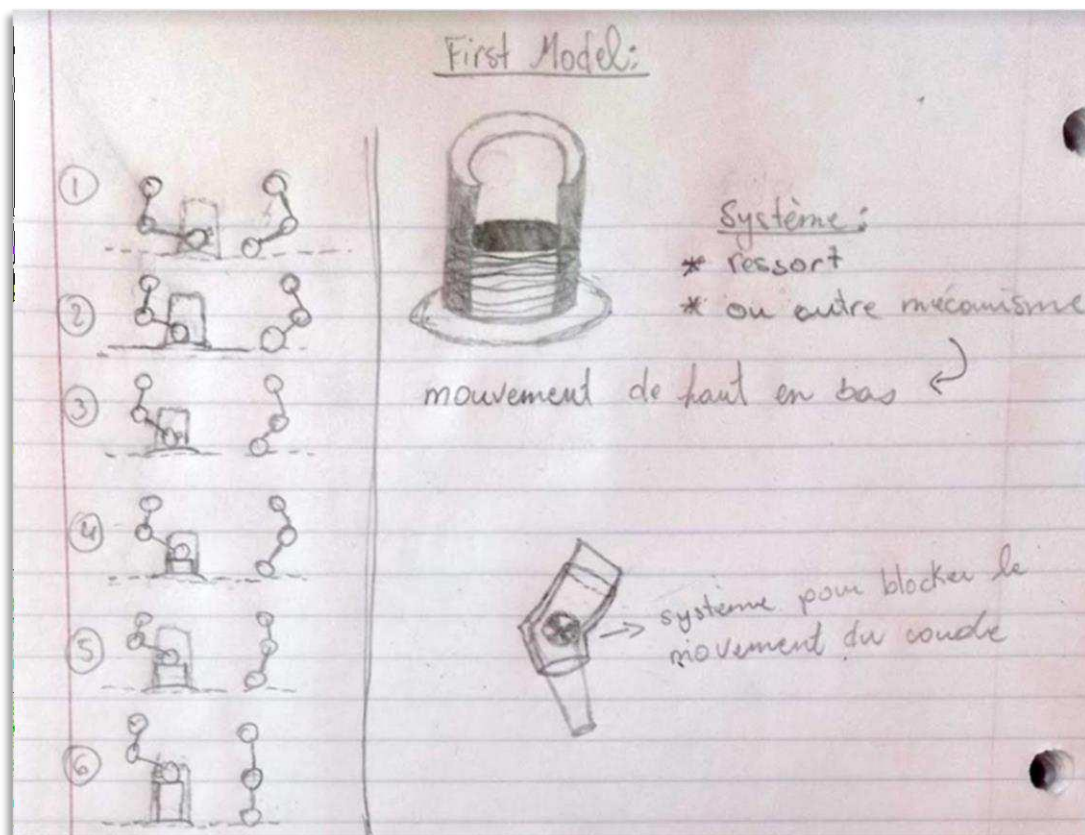 First Model:
1
2
3
4
5
6
Système:
* ressort
* ou autre mécanisme
mouvement de haut en bas
système pour blocker le
movement du coude